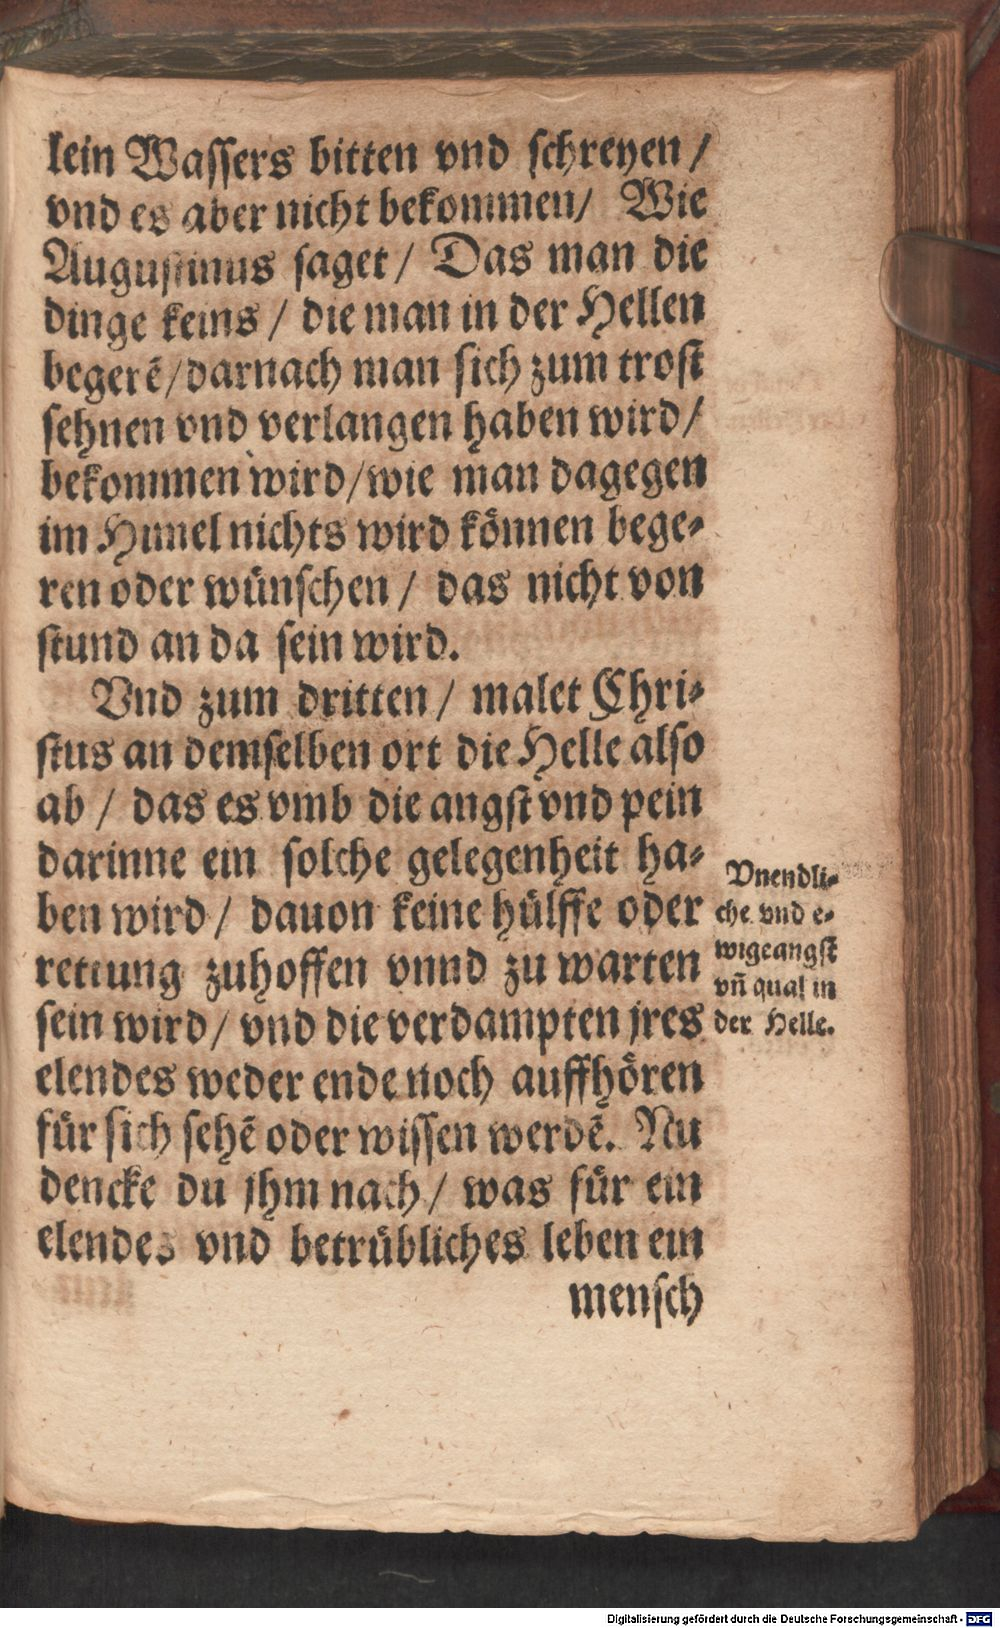 lein Wassers bitten vnd schreyen /
vnd es aber nicht bekommen / Wie
Augustinus saget / Das man die
dinge keins / die man in der Hellen
begerē / darnach man sich zum trost
sehnen vnd verlangen haben wird /
bekommen wird / wie man dagegen
im Himel nichts wird können bege-
ren oder wünschen / das nicht von
stund an da sein wird.
Vnd zum dritten / malet Chri-
stus an demselben ort die Helle also
ab / das es vmb die angst vnd pein
darinne ein solche gelegenheit ha-
ben wird / dauon keine hülffe oder
rettung zuhoffen vnnd zu warten
sein wird / vnd die verdampten jres
elendes weder ende noch auffhören
für sich sehē oder wissen werdē. Nu
dencke du jhm nach / was für ein
elendes vnd betrübliches leben ein
mensch
Vnendli-
che vnd e-
wige angst
vn̄ qual in
der Helle.
Digitalisierung gefördert durch die Deutsche Forschungsgemeinschaft - DFG